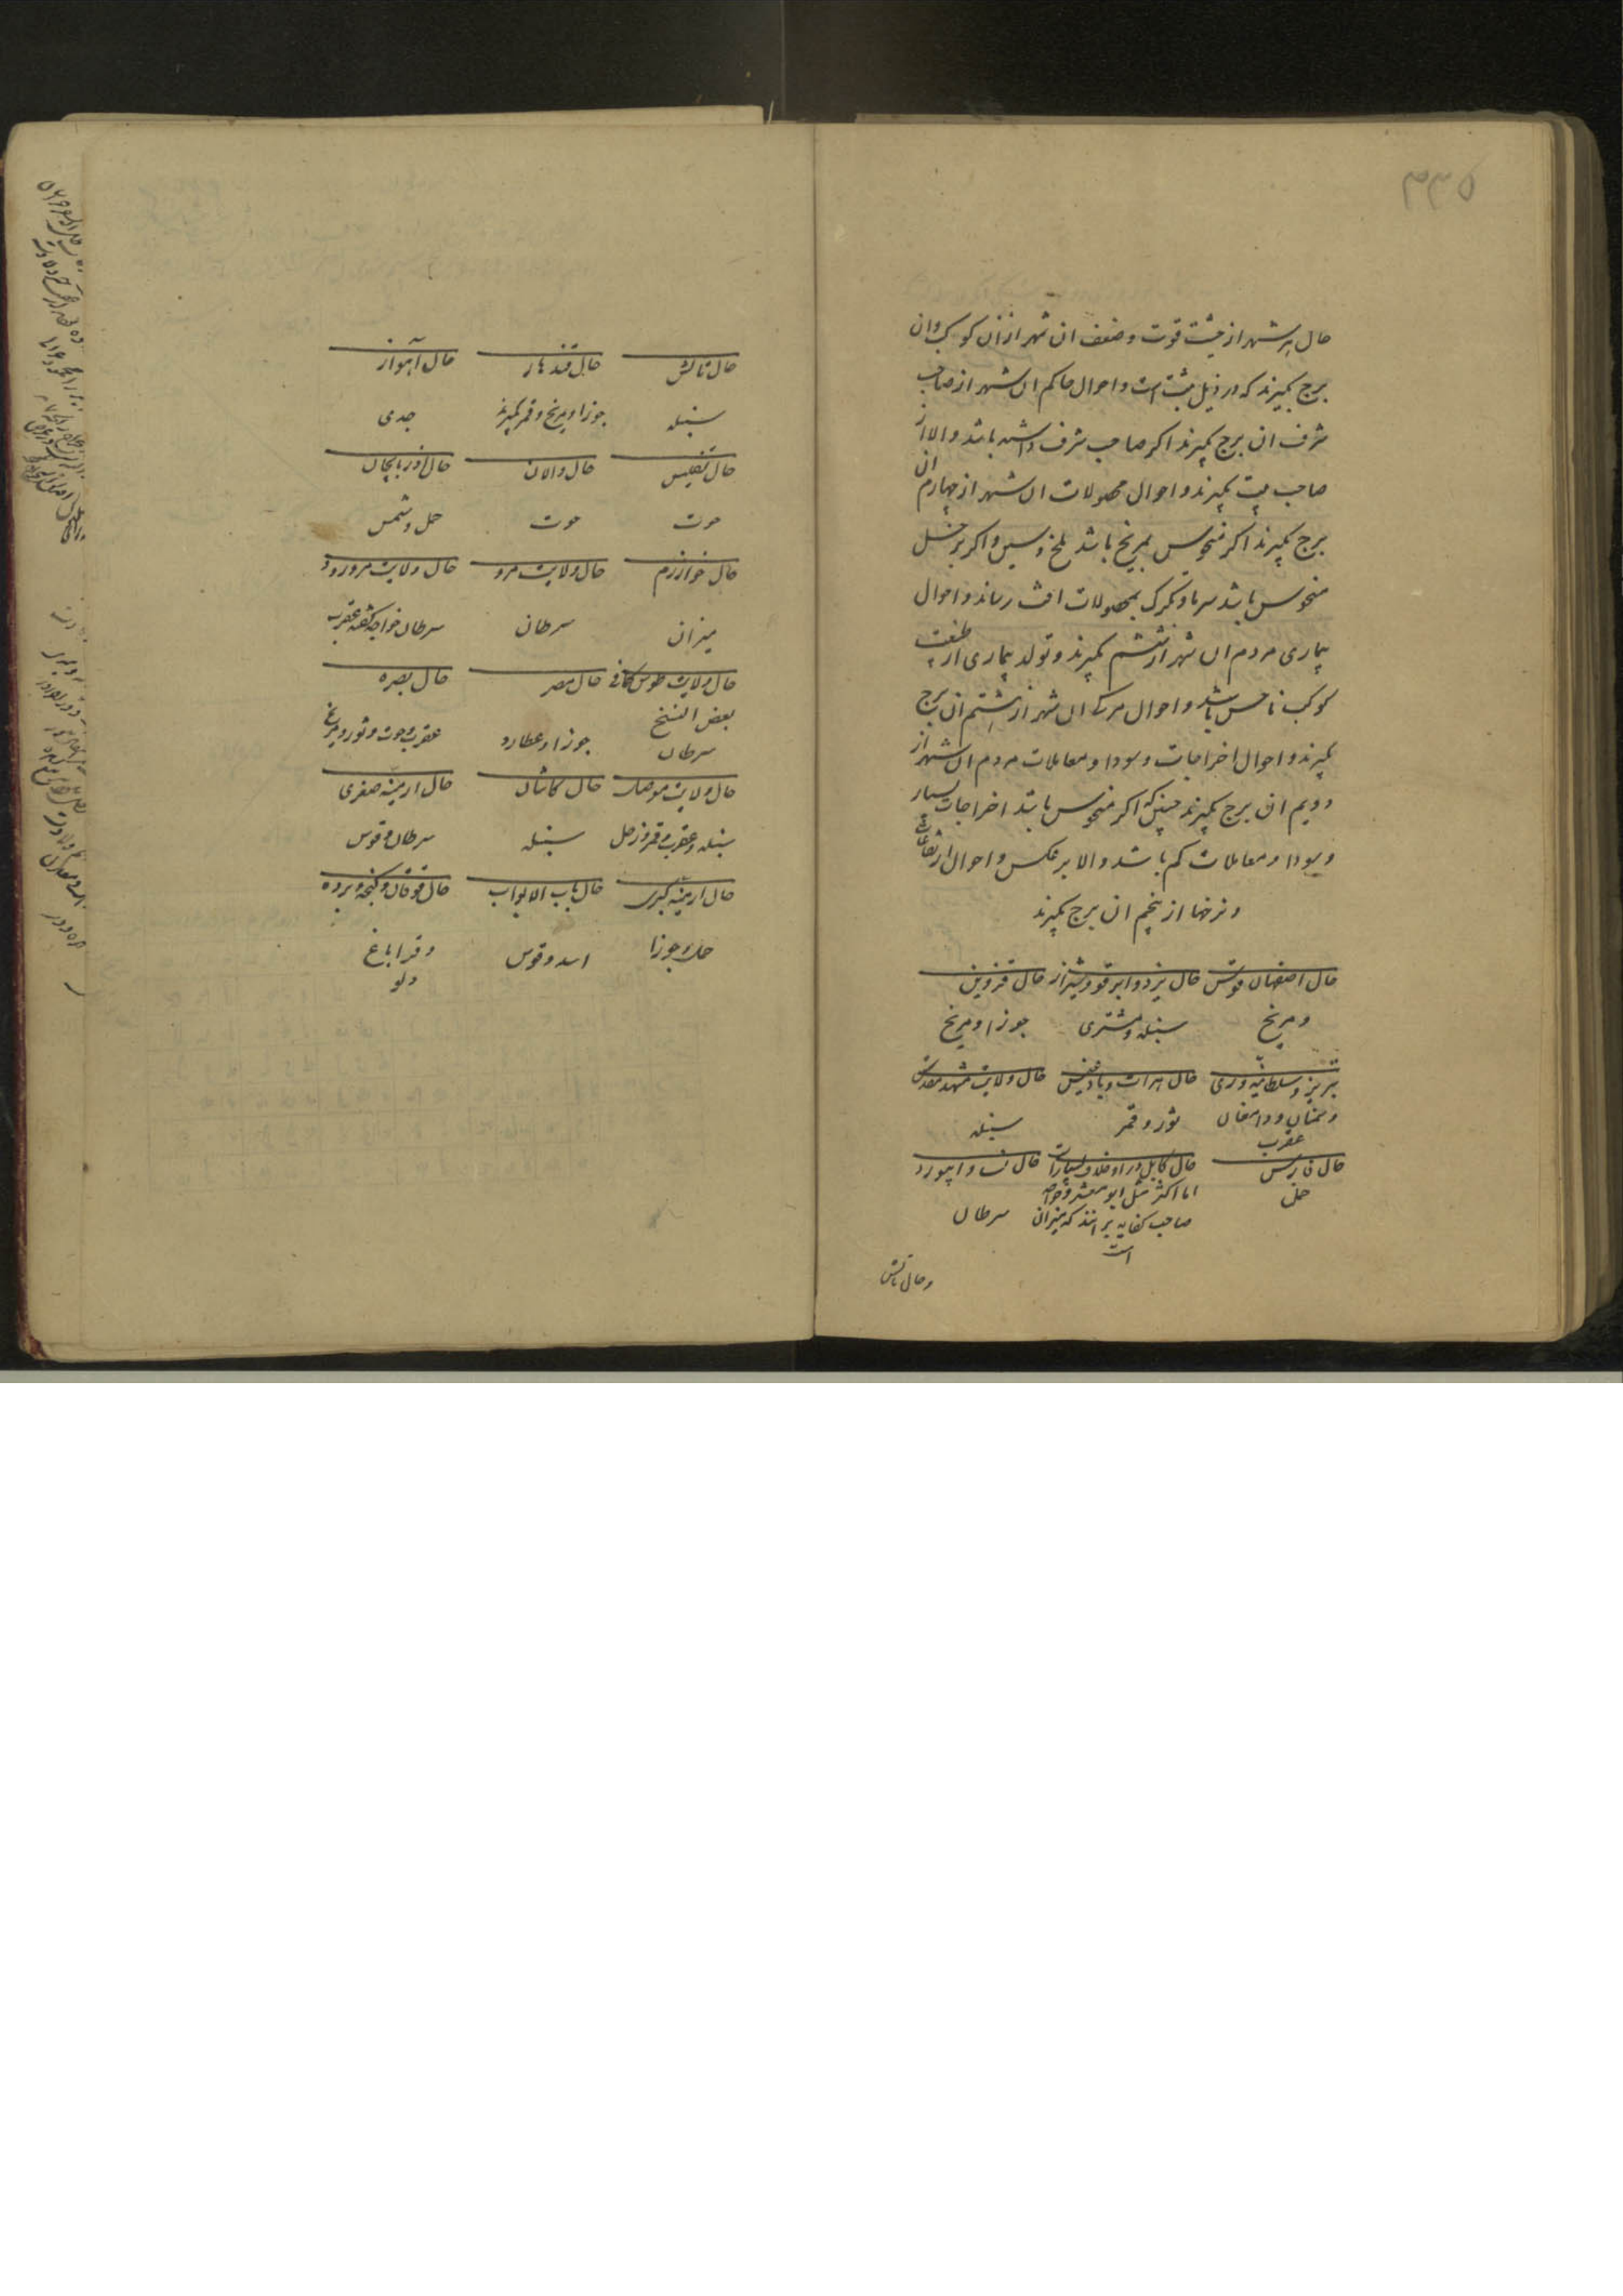 ۵۳۳
حال هر شهر از حیثیت قوت و ضعف ان شهر از ان کوکب و ان
برج بگیرند که در ذیل مثبت است و احوال حاکم ان شهر از صاحب
شرف ان برج بگیرند اکر صاحب شرف داشته باشد و الا از
صاحب بیت بگیرند و احوال محصولات ان شهر از چهارم ان
برج بگیرند اکر منحوس بمریخ باشد ملخ و سن و اکر بزحل
منحوس باشد سرما و تکرک بمحصولات افت رساند و احوال
بیماری مردم ان شهر از ششم بگیرند و تولد بیماری از طبیعت
کوکب ناحس باشد و احوال مرک ان شهر از هشتم ان برج
بگیرند و احوال اخراجات و سودا و معاملات مردم ان شهر از
دویم ان برج بگیرند چنانکه اکر منحوس باشد اخراجات بسیار
و سودا و معاملات کم باشد و الا بر عکس و احوال ارتفاعات
و نرخها از پنجم ان برج بگیرند
حال اصفهان قوس حال یزد و ابرقو و شیراز حال قزوین
و مریخ سنبله و مشتری جوزا و مریخ
تبریز و سلطانیه و ری حال هرات و بادغیس حال ولایت مشهد مقدس
و سمنان و دامغان ثور و قمر سنبله
عقرب
حال فارس حال کابل در او خلاف بسیار است حال نسا و ابیورد
حمل اما اکثر مثل ابو معشر و خواجه
صاحب کفایه بر انند که میزان سرطان
است
و حال تالش
حال تالش حال قندهار حال آهواز
سنبله جوزا و مریخ و قمر بگیرند جدی
حال تفلیس حال والان حال اذربایجان
حوت حوت حمل و شمس
حال خوارزم حال ولایت مرو حال ولایت مرورود
میزان سرطان سرطان خواجه گفته عقرب
حال ولایت طوس کما فی حال مصر حال بصره
بعض النسخ جوزا و عطارد عقرب و حوت و ثور و مریخ
سرطان
حال ولایت موصل حال کاشان حال ارمینه صغری
سنبله و عقرب و قمر و زحل سنبله سرطان و قوس
حال ارمینه کبری حال باب الابواب حال قوقان و کنجه و برده
حمل و جوزا اسد و قوس و قراباغ
دلو